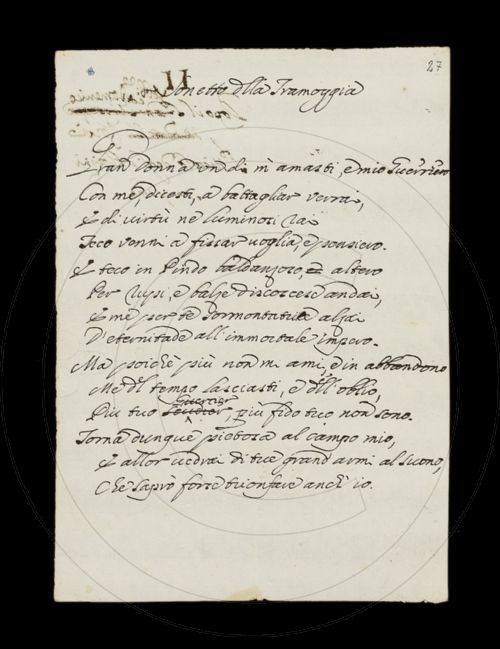 27
Sonetto d'lla Tramoggia
Gran Donna un dì m'amasti, e mio Guerriero
Con me, dicesti, a battagliar verrai,
E di virtù ne luminosi rai
Teco venni a fissar voglia, e pensiero.
E teco in Pindo baldanzoso, ed altero
Per rupi, e balze discoscese andai,
E me per te sormontar
D'eternitade all'immortale impero.
Ma poichè più non m'ami, e in abbandono
Me d'l tempo lasciasti, e d'll'oblio,
Guerrier
Più tuo, più fido teco non sono.
Torna dunque pietosa al campo mio,
E allor vedrai di tue grand'armi al suono,
Che saprò forse trionfare anch'io.